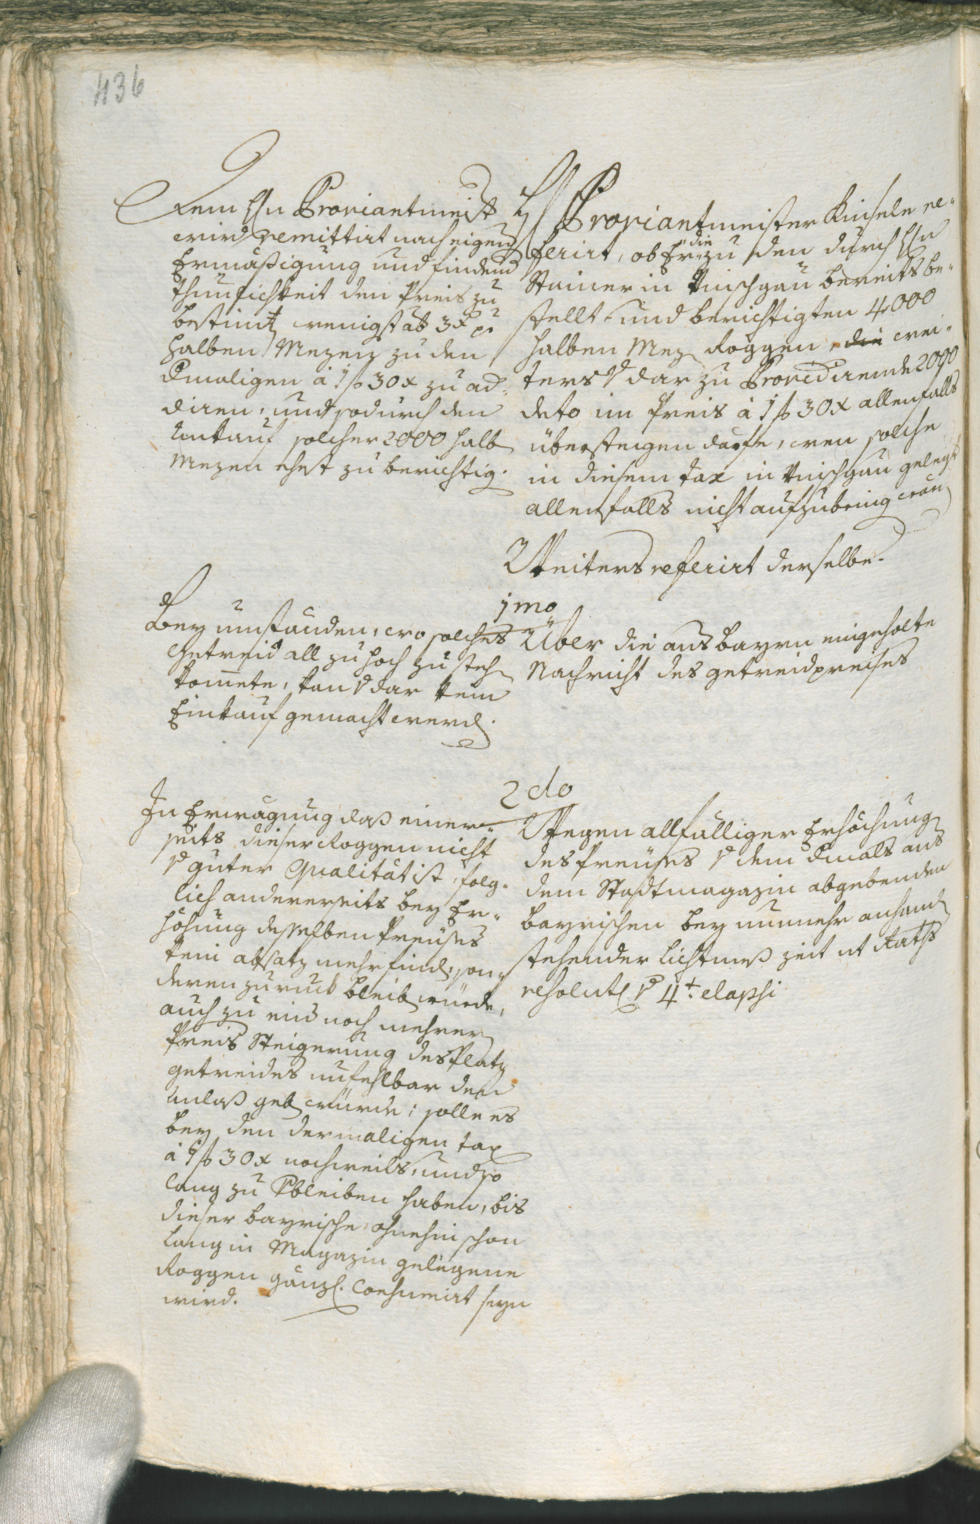 436
Dem Hn Proviantmeist
wird remittirt nach eigen
Ermäßigung und findend
Thunlichkeit den Preis zu
bestimen wenigst als 3x pr
halben Mezen zu den
dmaligen à 1 f 30 x zu ad¬
diren, und sodurch den
Ankauf solcher 2000 halb
Mezen ehest zu berichtig.
H Proviantmeister Kinsele re¬
ferirt, ob Er die zu den durch Hn
Stainer in Vinschgau bereits be¬
stellt- und berichtigten 4000
halben Mez Roggen, die wei¬
ters dar zu Providirende 2000
deto im Preis à 1 f 30 x allenfalls
übersteigen darfe, wen solche
in diesem tax in Vinschgau gelegt
allenfalls nicht aufzubring wäre
Weiters referirt derselbe.
1mo
Bey umständen, wo solches
Getreid all zu hoch zu steh
kommete, kan dar kein
Einkauf gemacht werd.
Über die aus Bayrn eingeholte
Nachricht des getreidpreises
2do
In Erwägung daß einer¬
seits dieser Roggen nicht
guter Qualität ist, folg¬
lich andererseits bey Er¬
höhung desselben Preises
kein absatz mehr find, son¬
deren zuruck bleib würde,
auch zu eine noch mehrer
Preis Steigerung des Platz
getreides unfehlbar den
anlaß geb würde; solle es
bey den dermaligen tax
à 1 f 30 x nochweils, und so
lang zu Verbleiben haben, bis
dieser bayrische, ohnehin schon
lang in Magazin gelegene
Roggen gänzl. Consumirt seyn
wird.
Wegen allfälliger Erhöchung
des Preises dem dmals aus
dem Stadtmagazin abgebenden
bayrischen bey nunmehr anhand
stehender lichtmeß zeit ut Raths
resolut 4t elapsi